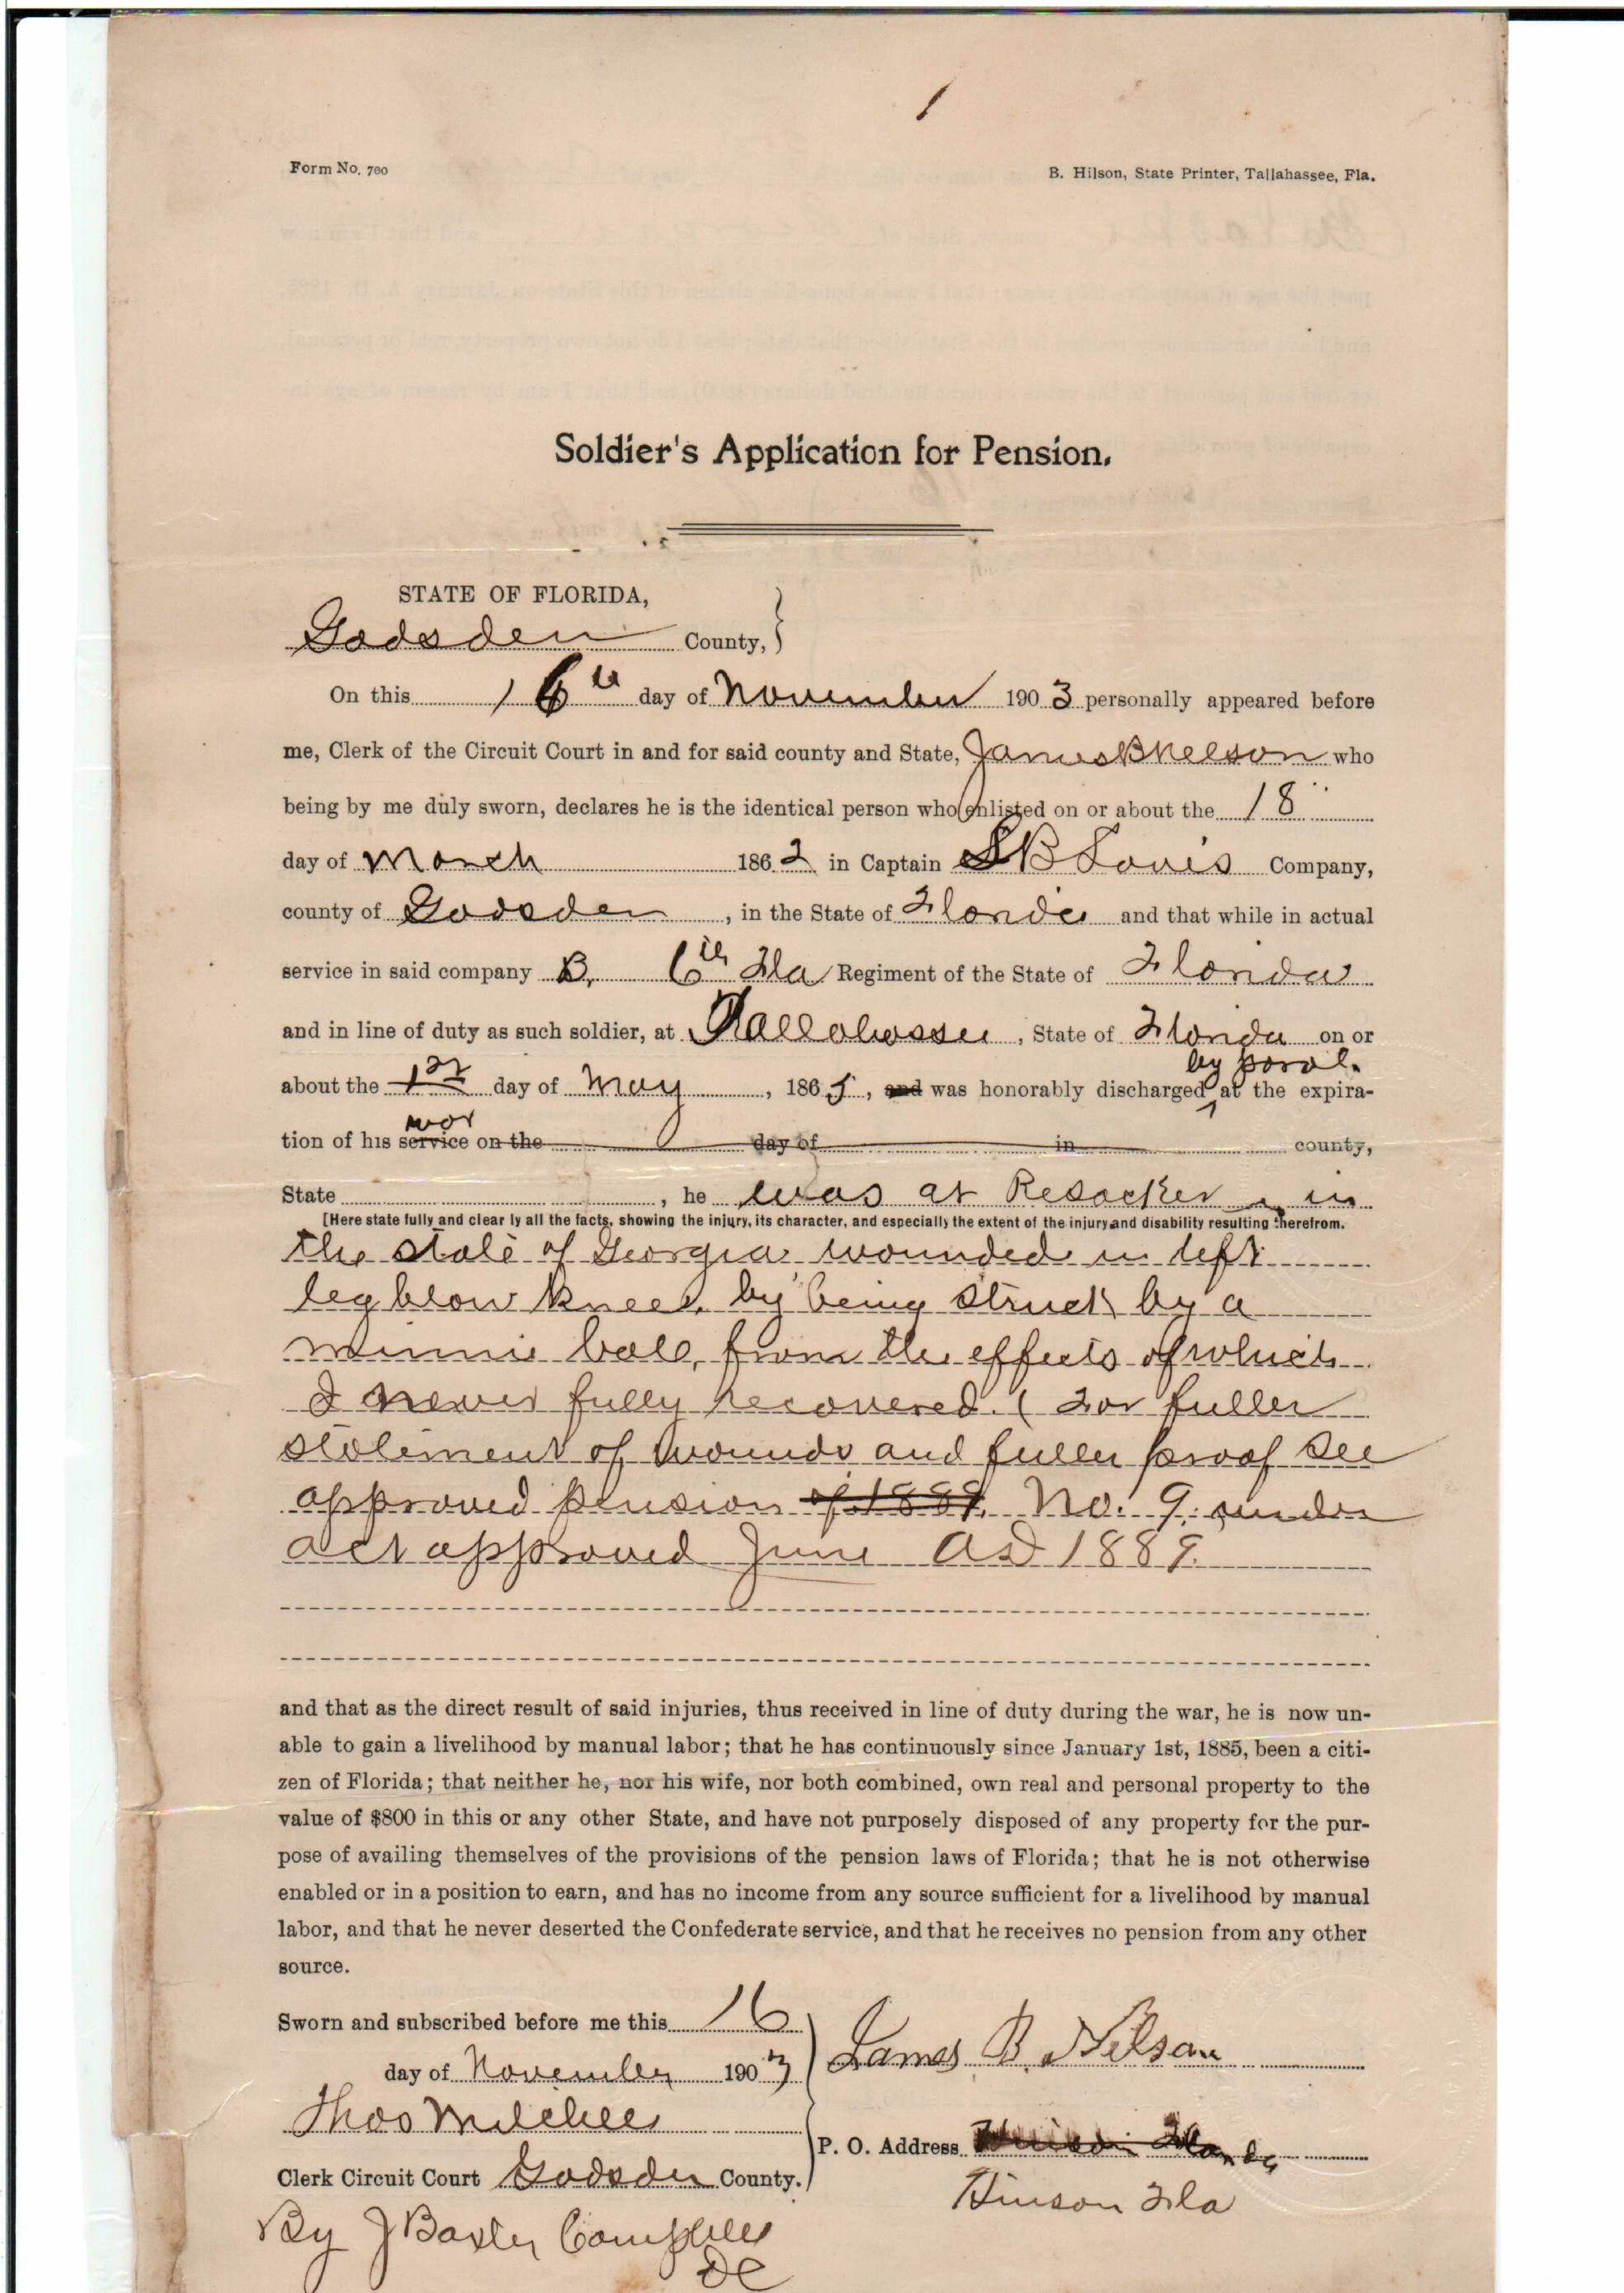 1
Form No. 700
B. Hilson, State Printer, Tallahassee, Fla.
Soldier's Application for Pension.
STATE OF FLORIDA,
Gadsden County,
On this 16th day of November 1903 personally appeared before
me, Clerk of the Circuit Court in and for said county and State, James B Nelson who
being by me duly sworn, declares he is the identical person who enlisted on or about the 18
day of March 1862 in Captain S B Louis Company,
county of Gadsden, in the State of Florida and that while in actual
service in said company B, 6th Fla Regiment of the State of Florida
and in line of duty as such soldier, at Tallahassee, State of Florida on or
by parol.
about the 1st day of May, 1865, and was honorably discharged at the expira-
war
tion of his service on the day of in county,
State , he was at Resacker in
[Here state fully and clearly all the facts, showing the injury, its character, and especially the extent of the injury and disability resulting therefrom.
the state of Georgia wounded in left
leg blow knee, by being struck by a
minnie ball, from the effects of which
I never fully recovered. ( For fuller
statement of wounds and fuller proof see
approved pension of 1889, No. 9, under
act approved June AD 1889.
and that as the direct result of said injuries, thus received in line of duty during the war, he is now un-
able to gain a livelihood by manual labor; that he has continuously since January 1st, 1885, been a citi-
zen of Florida; that neither he, nor his wife, nor both combined, own real and personal property to the
value of $800 in this or any other State, and have not purposely disposed of any property for the pur-
pose of availing themselves of the provisions of the pension laws of Florida; that he is not otherwise
enabled or in a position to earn, and has no income from any source sufficient for a livelihood by manual
labor, and that he never deserted the Confederate service, and that he receives no pension from any other
source.
Sworn and subscribed before me this 16
day of November 1903
James B. Nelson
Thos Mitchell
P. O. Address Hinson Florida
Clerk Circuit Court Gadsden County.
Hinson Fla
By J Baxter Campbell
DC